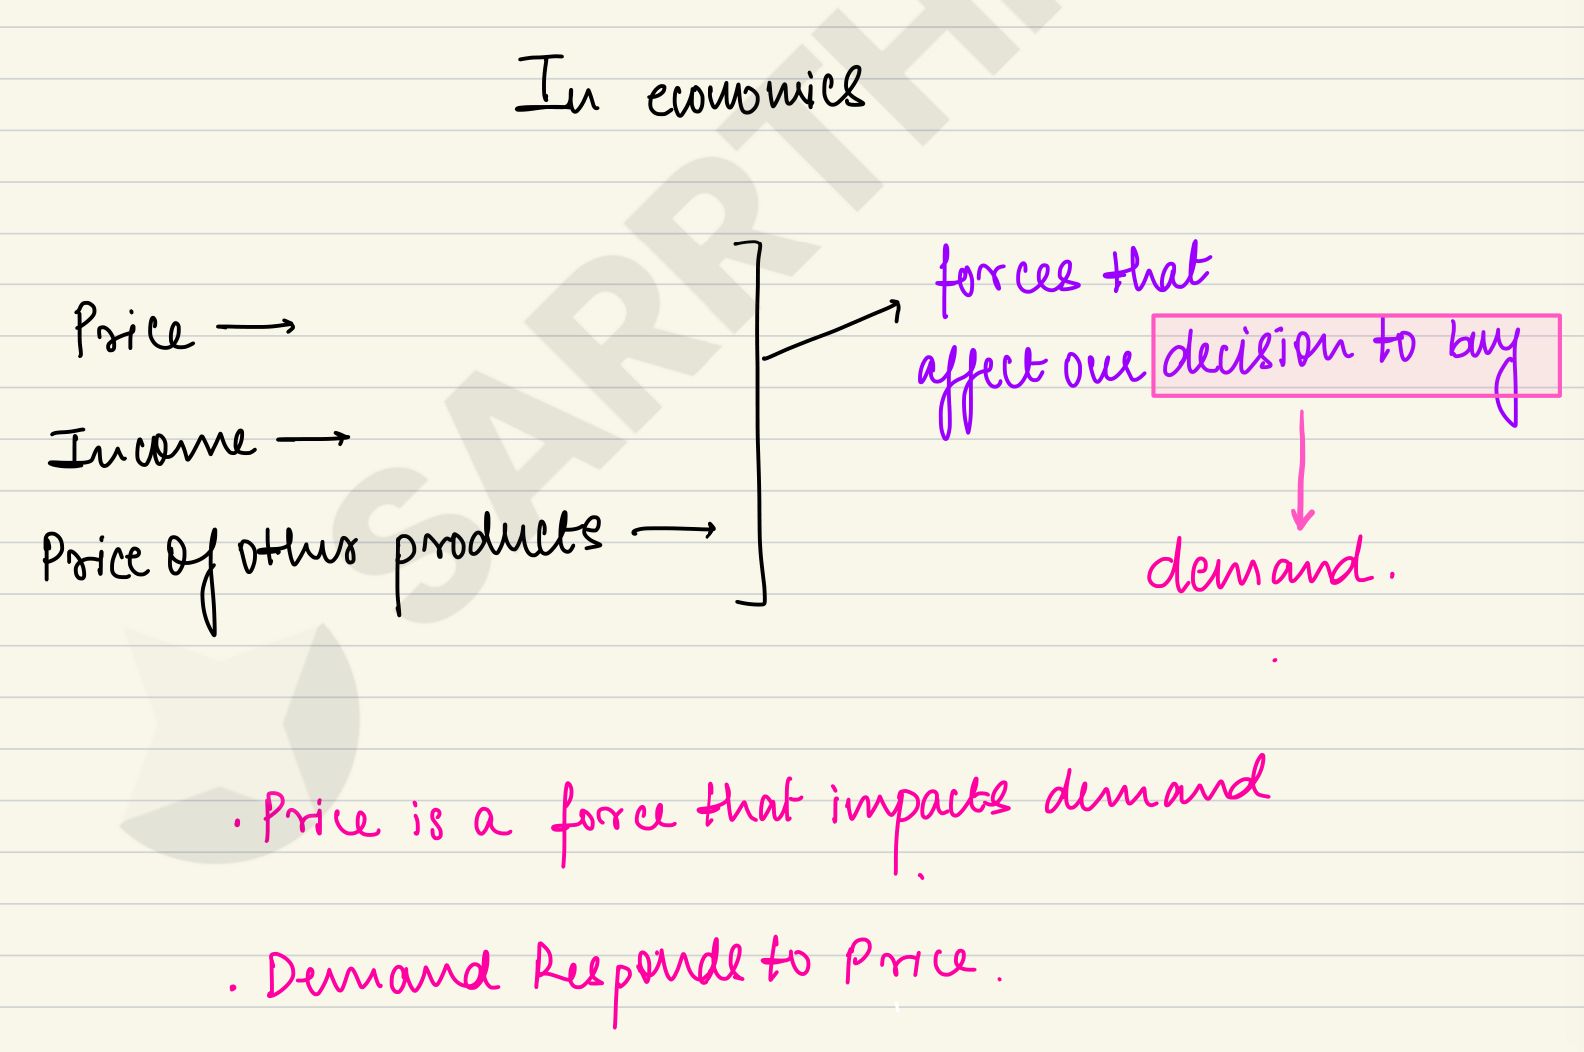 In economics
Price →
Income →
Price of other products →
forces that
affect our decision to buy
demand.
. Price is a force that impacts demand
. Demand Responds to Price.
SARTH